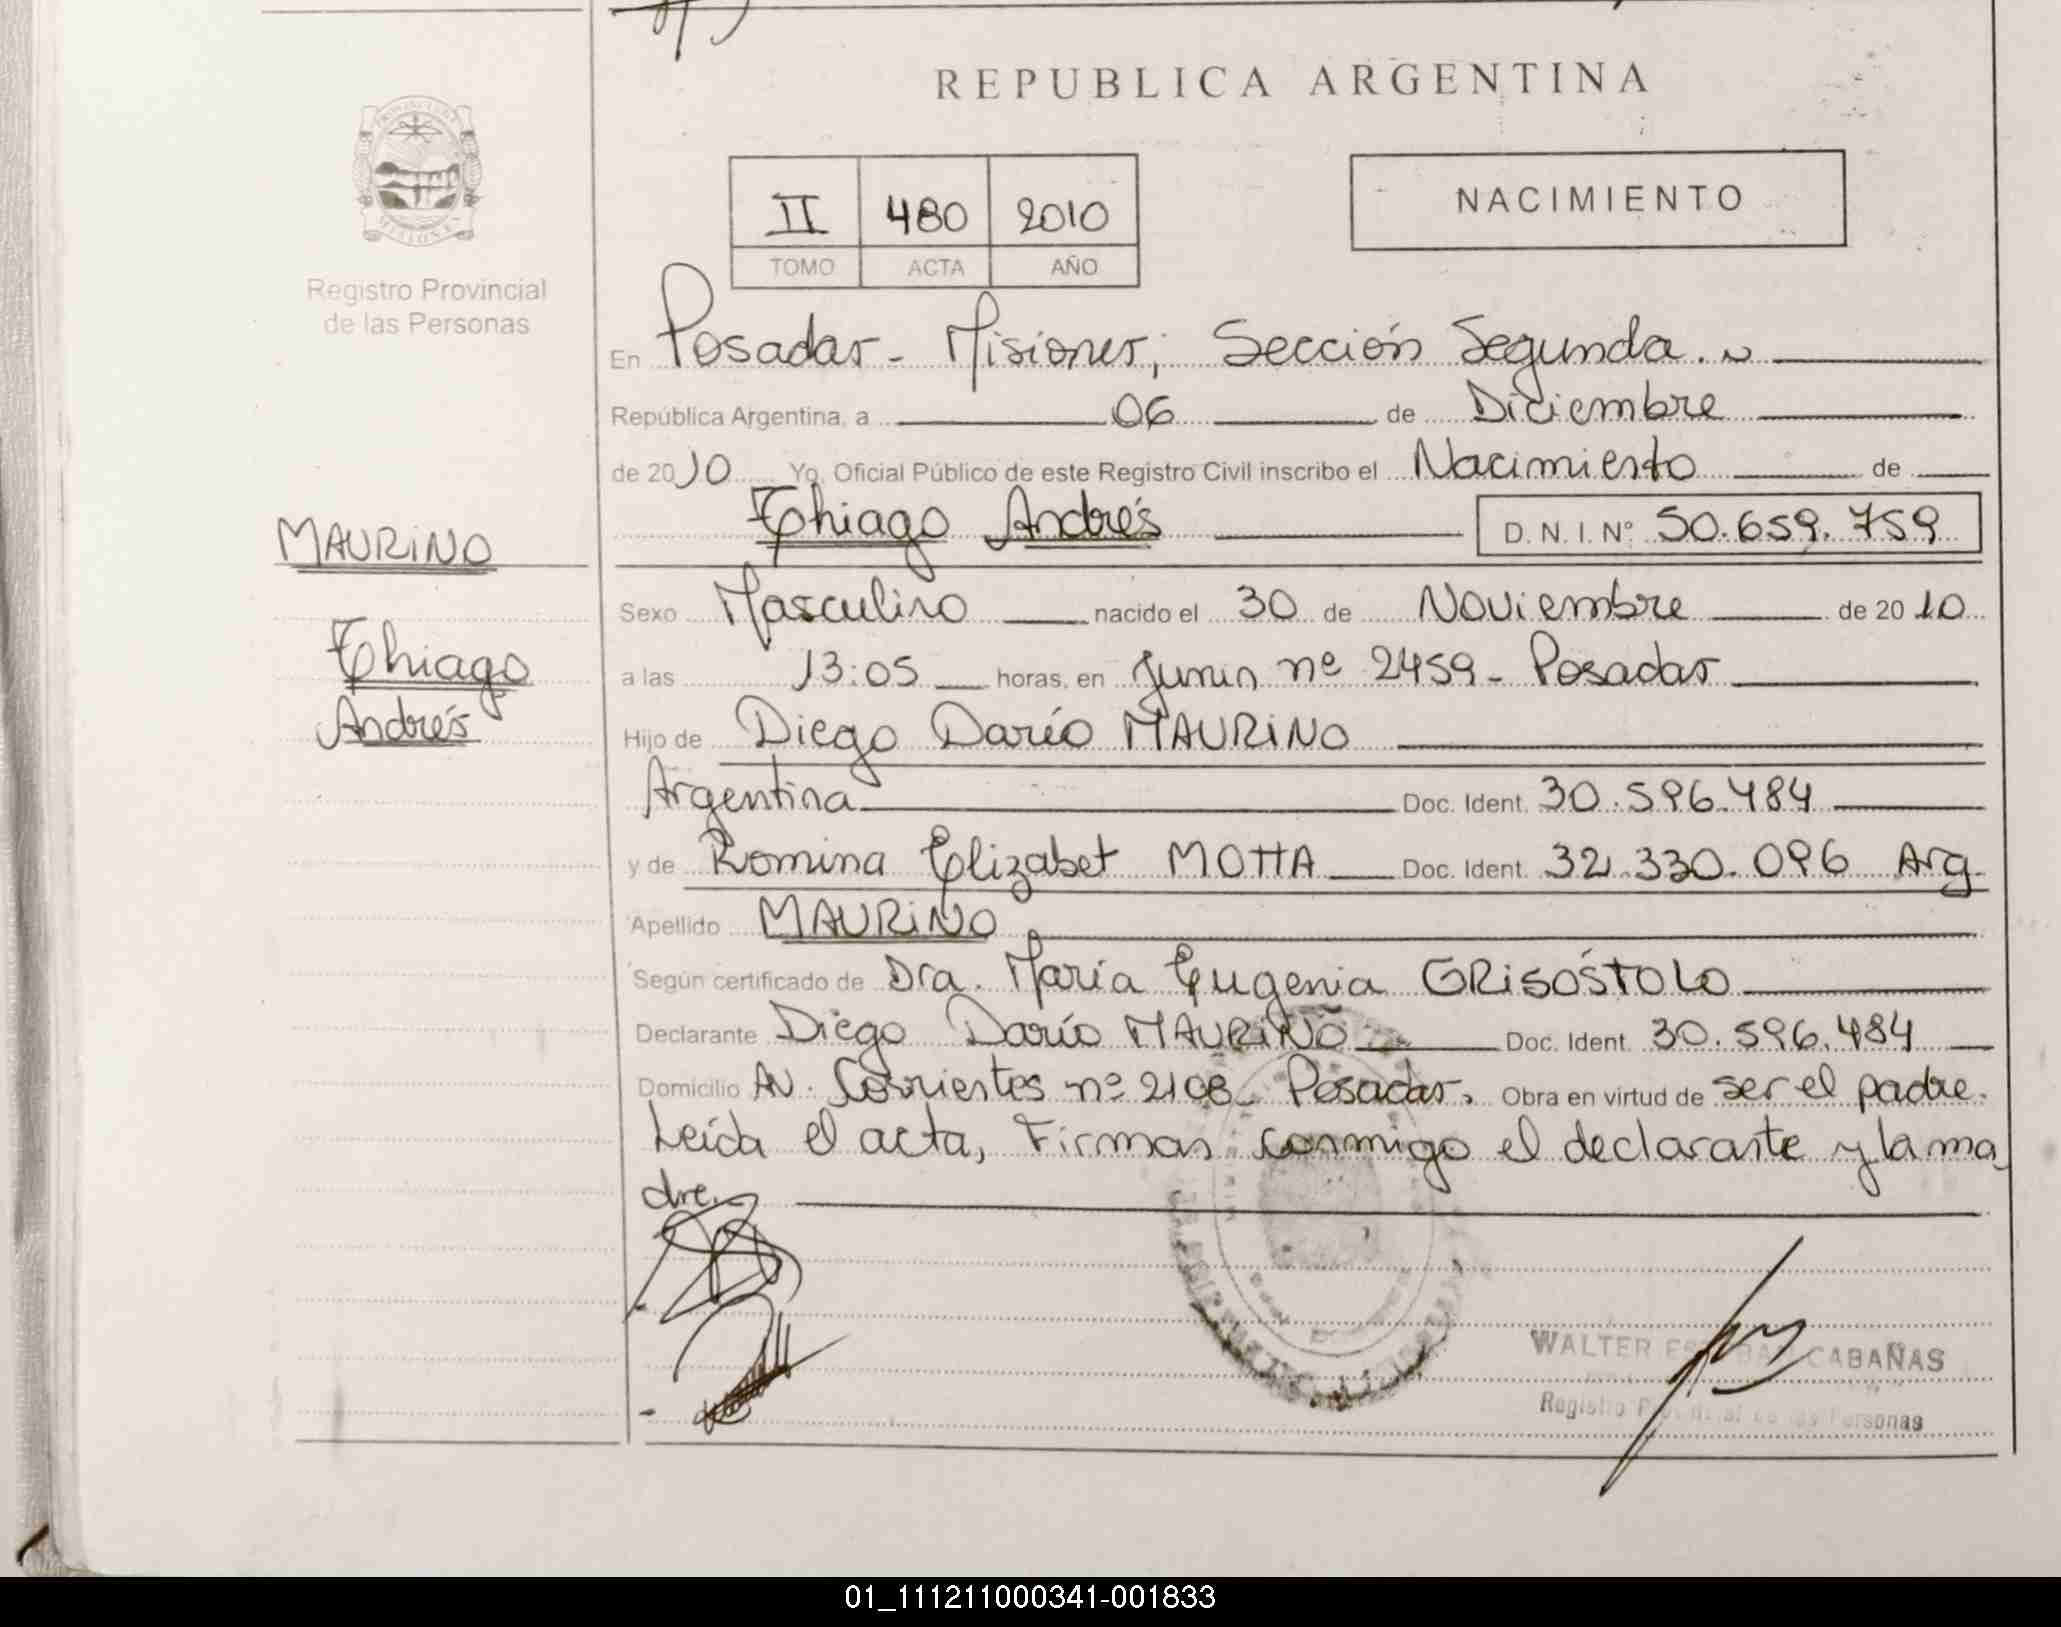 REPUBLICA ARGENTINA
II 480 2010
TOMO ACTA AÑO
NACIMIENTO
Registro Provincial
de las Personas
En Posadas - Misiones, Sección Segunda.
República Argentina, a 06 de Diciembre
de 2010 Yo, Oficial Público de este Registro Civil inscribo el Nacimiento de
Thiago Andrés D.N.I. Nº 50.659.759
MAURINO
Thiago
Andrés
Sexo Masculino nacido el 30 de Noviembre de 2010
a las 13:05 horas, en Junin nº 2459 - Posadas
Hijo de Diego Darío MAURINO
Argentina Doc. Ident. 30.596.484
y de Romina Elizabet MOTTA Doc. Ident. 32.330.096 Arg.
Apellido MAURINO
Según certificado de Dra. María Eugenia GRISÓSTOLO
Declarante Diego Darío MAURINO Doc. Ident. 30.596.484
Domicilio Av. Corrientes nº 2108 - Posadas. Obra en virtud de ser el padre.
Leída el acta, Firman conmigo el declarante y la ma
dre.
WALTER CABAÑAS
Registro Provincial de las Personas
01_111211000341-001833